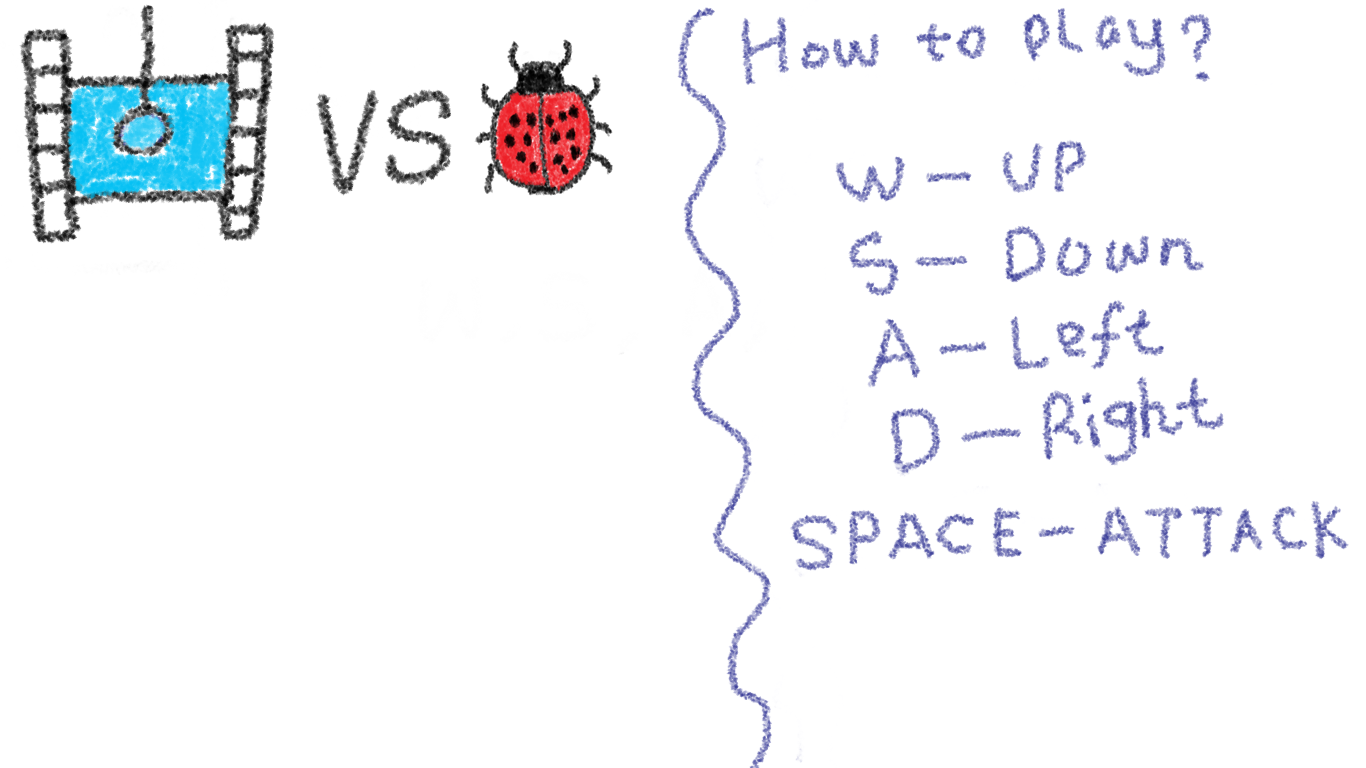 VS
How to play?
W - UP
S - Down
A - Left
D - Right
SPACE - ATTACK